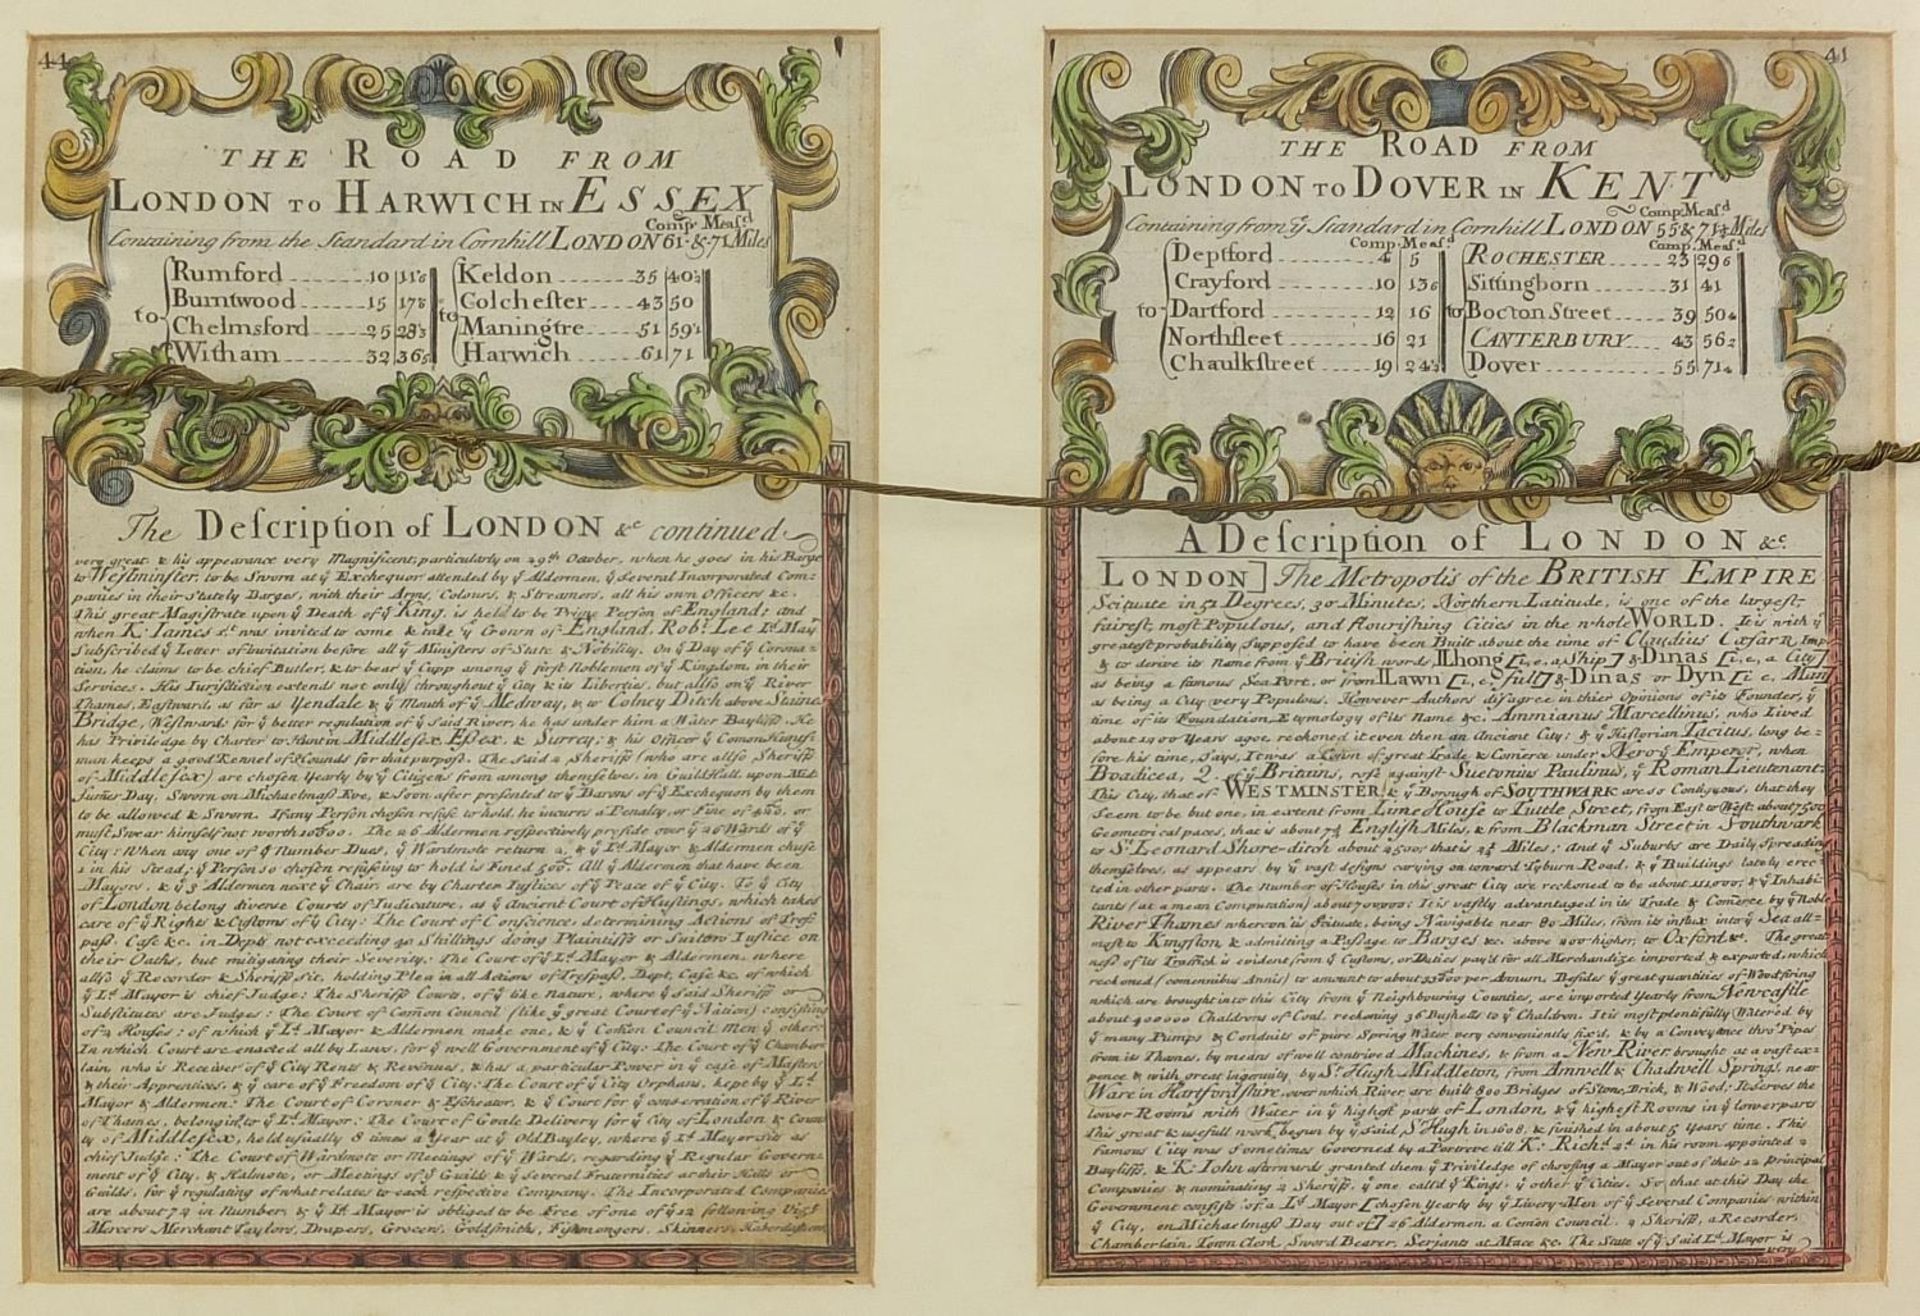 44
THE ROAD FROM
LONDON TO HARWICH IN ESSEX
Comp. Meas.d
Containing from the Standard in Cornhill LONDON 61 & 71 Miles
to
Rumford 10 11
Burntwood 15 17
Chelmsford 25 28
Witham 32 36
to
Keldon 35 40
Colchester 43 50
Maningtre 51 59
Harwich 61 71
The Description of LONDON &c continued
very great & his appearance very Magnificent, particularly on 29th October, when he goes in his Barge
to Westminster, to be Sworn at ye Exchequor attended by ye Aldermen, ye several Incorporated Com=
panies in their Stately Barges, with their Arms, Colours, & Streamers, all his own Officers &c.
This great Magistrate upon ye Death of ye King, is held to be Prime Person of England; and
when K: Iames 1st was invited to come & take ye Crown of England, Robt. Lee Ld. May
Subscribed ye Letter of Invitation before all ye Ministers of State & Nobility. On ye Day of ye Corona=
tion, he claims to be chief Butler, & to bear ye Cupp among ye first Noblemen of ye Kingdom, in their
Services. His Iurisdiction extends not only throughout ye City & its Liberties, but allso on ye River
Thames, Eastward, as far as Yendale & ye Mouth of ye Medway, & to Colney Ditch above Staines
Bridge, Westward: for ye better regulation of ye said River, he has under him a Water Bayliff. He
has Priviledge by Charter to Hunt in Middlesex, Essex, & Surrey; & his Officer ye Comon Hunts=
man keeps a good Kennel of Hounds for that purpose. The said 2 Sheriffs (who are allso Sheriffs
of Middlesex) are chosen Yearly by ye Citizens from among themselves, in Guild Hall, upon Mid=
sumer Day, Sworn on Michaelmass Eve, & Soon after presented to ye Barons of ye Exchequor by them
to be allowed & Sworn. If any Person chosen refuse to hold, he incurrs a Penalty, or Fine of or
must Swear himself not worth 10000. The 26 Aldermen respectively preside over ye 26 Wards of ye
City: When any one of ye Number Dues, ye Wardmote return 2, & ye Ld. Mayor & Aldermen chuse
1 in his Stead; ye Person so chosen refuseing to hold is Fined 500. All ye Aldermen that have been
Mayors, & ye 3 Aldermen next ye Chair, are by Charter Iustices of ye Peace of ye City. To ye City
of London belong diverse Courts of Iudicature, as ye Ancient Court of Hustings, which takes
care of ye Rights & Customs of ye City: The Court of Conscience determining Actions of Tres=
pass, Case &c. in Depts not exceeding 40 Shillings doing Plaintiffs or Suitors Iustice on
their Oaths, but mitigating their Severity: The Court of ye Ld. Mayor & Aldermen, where
allso ye Recorder & Sheriffs sit, holding Plea in all Actions of Trespass, Dept, Case &c. of which
ye Ld. Mayor is chief Iudge: The Sheriffs Courts, of ye like Nature, where ye said Sheriffs or
Substitutes are Iudges: The Court of Comon Council (like ye great Court of ye Nation) consisting
of 2 Houses: of which ye Ld. Mayor & Aldermen make one, & ye Comon Council Men ye other:
In which Court are enacted all by Laws, for ye well Government of ye City: The Court of ye Chamber=
lain, who is Receiver of ye City Rents & Revenues, & has a particular Power in ye case of Masters
& their Apprentices, & ye care of ye Freedom of ye City: The Court of ye City Orphans, kept by ye Ld.
Mayor & Aldermen: The Court of Coroner & Escheator, & ye Court for ye conservation of ye River
of Thames, belonging to ye Ld. Mayor: The Court of Goale Delivery for ye City of London & Coun=
ty of Middlesex, held usually 8 times a Year at ye Old Bayley, where ye Ld. Mayor sits as
chief Iudge: The Court of Wardmote or Meetings of ye Wards, regarding ye Regular Govern=
ment of ye City, & Halmote, or Meetings of ye Guilds & ye several Fraternities at their Halls or
Guilds, for ye regulating of what relates to each respective Company. The Incorporated Companies
are about 72 in Number, & ye Ld. Mayor is obliged to be Free of one of ye 12 following Vizt.
Mercers Merchant Taylors, Drapers, Grocers, Goldsmiths, Fishmongers, Skinners, Haberdashers
41
THE ROAD FROM
LONDON TO DOVER IN KENT
Comp. Meas.d
Containing from ye Standard in Cornhill LONDON 55 & 71 Miles
Comp. Meas.d Comp. Meas.d
to
Deptford 4 5
Crayford 10 13 6
Dartford 12 16
Northfleet 16 21
Chaulkstreet 19 24
to
ROCHESTER 23 29 6
Sittingborn 31 41
Bocton Street 39 50
CANTERBURY 43 56 2
Dover 55 71
A Description of LONDON &c.
LONDON] The Metropolis of the BRITISH EMPIRE
Scituate in 51 Degrees, 30 Minutes, Northern Latitude, is one of the largest,
fairest, most Populous, and flourishing Cities in the whole WORLD. It is with ye
greatest probability Supposed to have been Built about the time of Claudius Cæsar R. Imp.
& to derive its Name from ye British words Lhong [i, e, a Ship] & Dinas [i, e, a City]
as being a famous Sea Port, or from Llawn [i, e, full] & Dinas or Dyn [i e, Man
as being a City very Populous. However Authors disagree in thier Opinions of its Founder, ye
time of its Foundation, Etymology of its Name &c. Ammianus Marcellinus, who Lived
about 1200 Years agoe, reckoned it even then an Ancient City: & ye Historian Tacitus, long be=
fore his time, Says, It was a Town of great Trade & Comerce under Nero ye Emperor, when
Boadicea, Q. of ye Britains, rose against Suetonius Paulinus, ye Roman Lieutenant:
This City, that of WESTMINSTER, & ye Borough of SOUTHWARK are so Contiguous, that they
Seem to be but one, in extent from Lime House to Tuttle Street, from East to West, about 7500
Geometrical paces, that is about 7½ English Miles, & from Blackman Street in Southwark
to St. Leonard Shore-ditch about 2500; that is 2½ Miles; And ye Suburbs are Daily Spreading
themselves, as appears by ye vast designs carrying on toward Tyburn Road, & ye Buildings lately erec=
ted in other parts. The Number of Houses in this great City are reckoned to be about 111,000; & ye Inhabi=
tants (at a mean Computation) about 700000: It is vastly advantaged in its Trade & Comerce by ye Noble
River Thames whereon it is Scituate, being Navigable near 80 Miles, from its influx into ye Sea all=
most to Kingston & admitting a Passage to Barges &c. above 200 higher, to Oxford &c. The great=
ness of its Traffick is evident from ye Customs, or Duties pay'd for all Merchandize imported & exported, which
reckoned (comennibus Annis) to amount to about per Annum. Besides ye great quantities of Wood firing
which are brought into this City from ye Neighbouring Counties, are imported Yearly from Newcastle
about 400000 Chaldrons of Coal, reckoning 36 Bushells to ye Chaldron. It is most plentifully Watered by
ye many Pumps & Conduits of pure Spring Water very conveniently fix'd, & by a Conveyance thro' Pipes
from its Thames, by means of well contrived Machines, & from a New River, brought at a vast ex=
pence & with great Ingenuity by Sr. Hugh Middleton, from Amwell & Chadwell Springs, near
Ware in Hartfordshire, over which River are built 800 Bridges of Stone, Brick, & Wood; It serves the
lower Rooms with Water in ye highest parts of London, & ye highest Rooms in ye lower parts
This great & usefull work begun by ye said Sr. Hugh in 1608, & finished in about 5 Years time. This
famous City was Sometimes Governed by a Portreve till K: Richd. 2d. in his room appointed 2
Bayliffs, & K: Iohn afterwards granted them ye Priviledge of choosing a Mayor out of their 12 principal
Companies & nominating 2 Sheriffs, ye one call'd ye Kings, ye other ye Cities. So that at this Day the
Government consists of a Ld. Mayor [chosen Yearly by ye Livery-Men of ye several Companies within
ye City, on Michaelmass Day out of] 26 Aldermen, a Comon Council, 2 Sheriffs, a Recorder,
Chamberlain, Town Clerk, Sword Bearer, Serjants at Mace &c. The State of ye said Ld. Mayor is
very